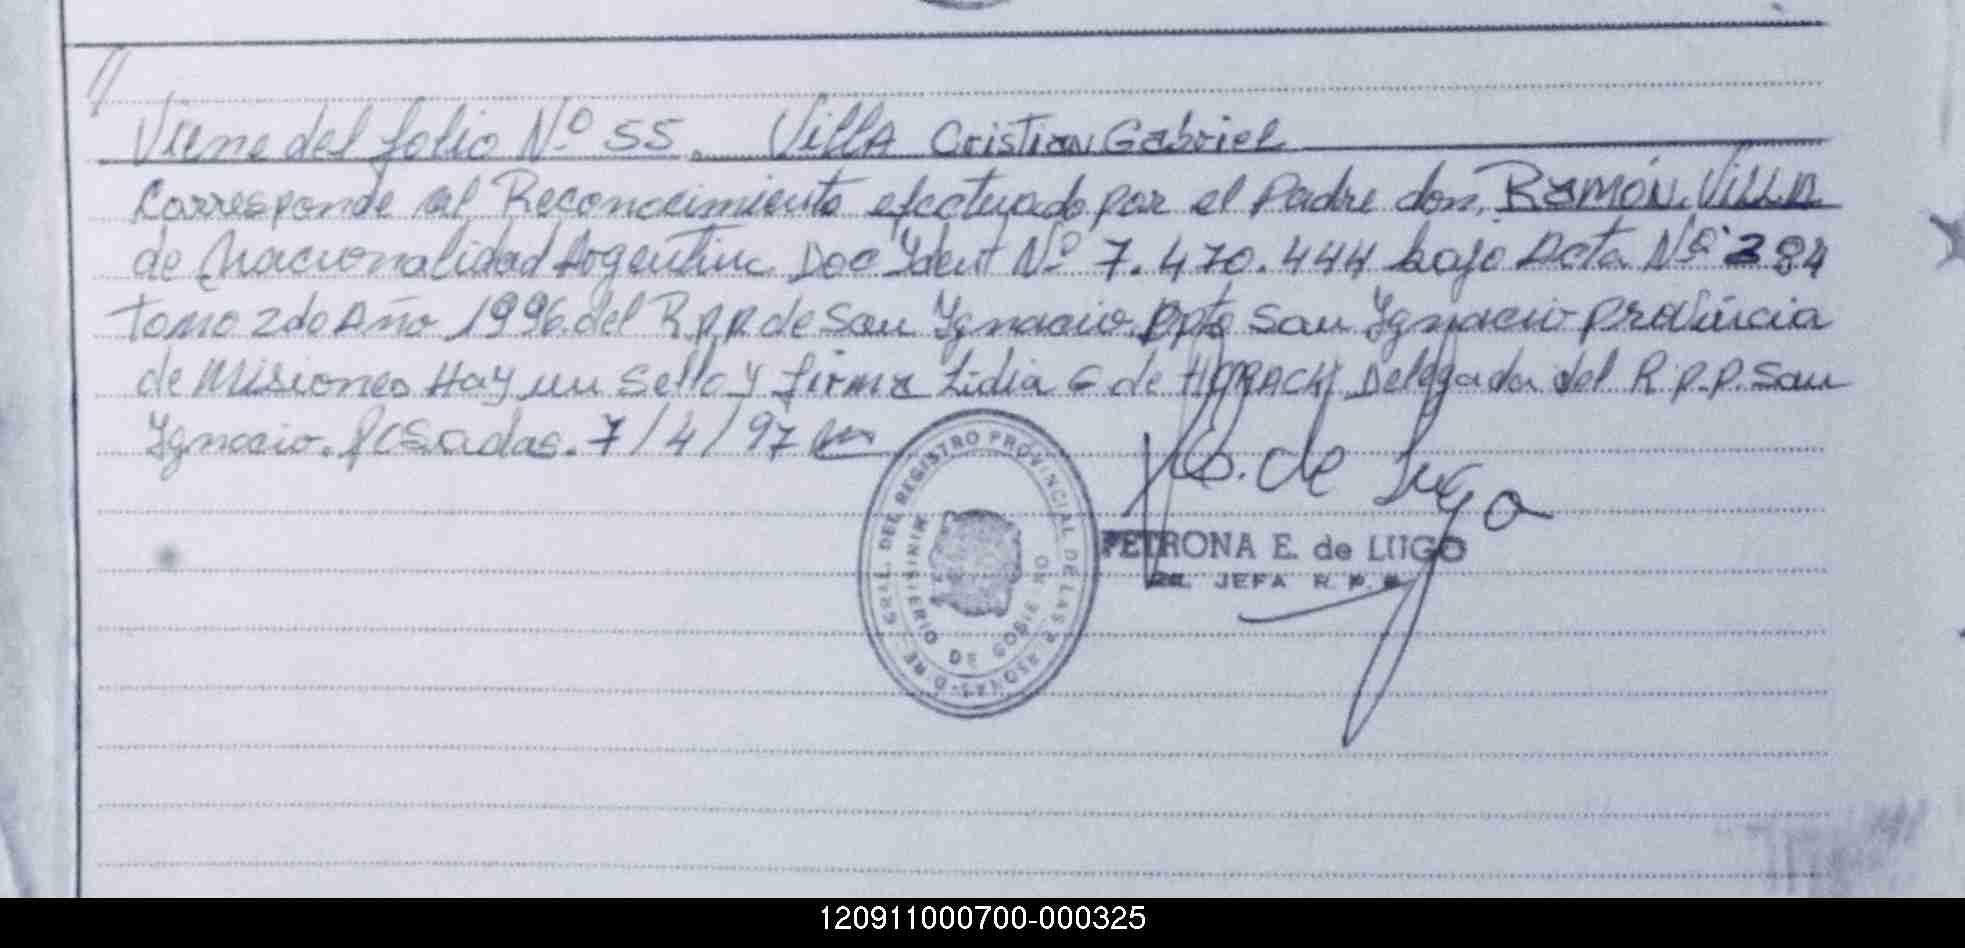 //
Viene del folio Nº 55. Villa Cristian Gabriel
Corresponde al Reconocimiento efectuado por el Padre don, RAMÓN VILLA
de Nacionalidad Argentina Doc Ident Nº 7.470.444 bajo Acta Nº 284
Tomo 2do Año 1996 del R.p.p. de San Ignacio Dpto San Ignacio provincia
de Misiones Hay un Sello y firma Lidia G de Delegada del R.p.p. San
Ignacio. Posadas. 7/4/97
E. de Lugo
PETRONA E. de LUGO
JEFA R. P. P.
DEL REGISTRO PROVINCIAL DE LAS PERSONAS
MINISTERIO DE GOBIERNO
120911000700-000325